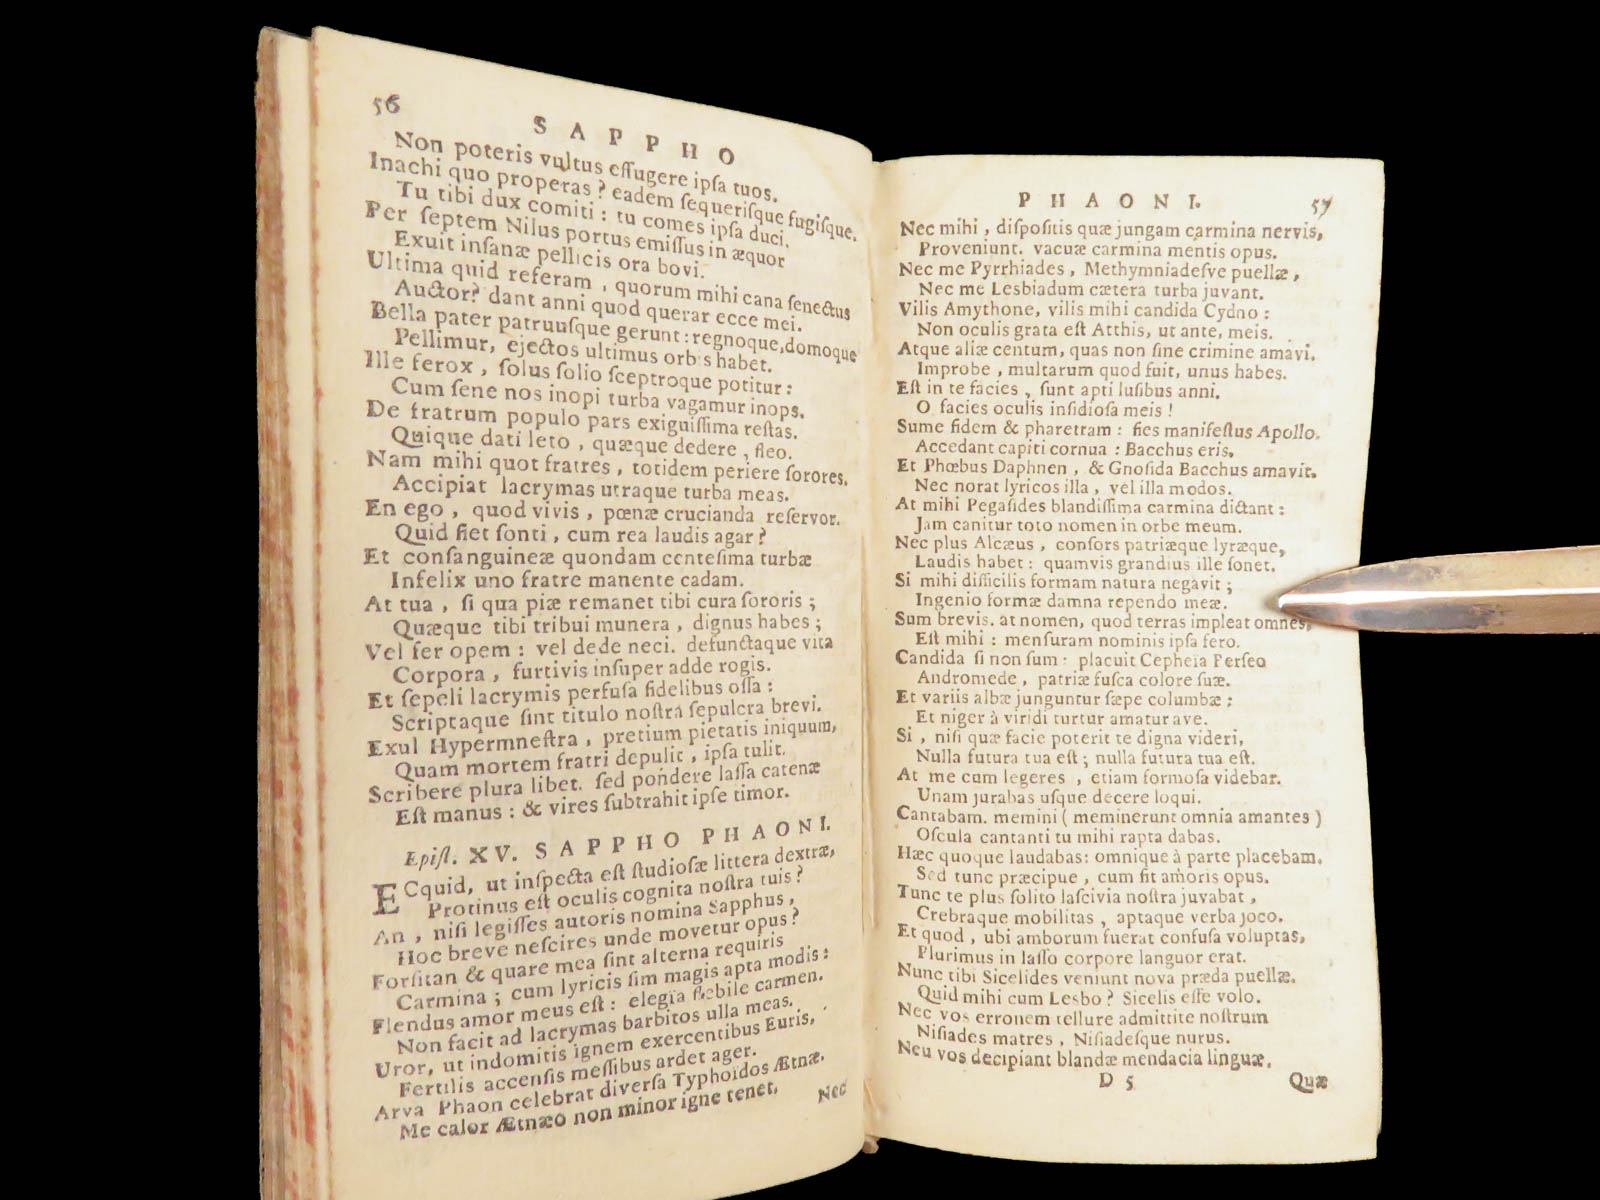 56
SAPPHO
Non poteris vultus effugere ipſa tuos.
Inachi quo properas? eadem ſequeriſque fugiſque.
Tu tibi dux comiti: tu comes ipſa duci.
Per ſeptem Nilus portus emiſſus in æquor
Exuit inſanæ pellicis ora bovi.
Ultima quid referam, quorum mihi cana ſenectus
Auctor? dant anni quod querar ecce mei.
Bella pater patruuſque gerunt: regnoque, domoque
Pellimur, ejectos ultimus orb s habet.
Ille ferox, ſolus ſolio ſceptroque potitur:
Cum ſene nos inopi turba vagamur inops.
De fratrum populo pars exiguiſſima reſtas.
Quique dati leto, quæque dedere, fleo.
Nam mihi quot fratres, totidem periere ſorores.
Accipiat lacrymas utraque turba meas.
En ego, quod vivis, pœnæ crucianda reſervor.
Quid fiet ſonti, cum rea laudis agar?
Et conſanguineæ quondam centeſima turbæ
Infelix uno fratre manente cadam.
At tua, ſi qua piæ remanet tibi cura ſororis;
Quæque tibi tribui munera, dignus habes;
Vel fer opem: vel dede neci. defunctaque vita
Corpora, furtivis inſuper adde rogis.
Et ſepeli lacrymis perfuſa fidelibus oſſa:
Scriptaque ſint titulo noſtra ſepulcra brevi.
Exul Hypermneſtra, pretium pietatis iniquum,
Quam mortem fratri depulit, ipſa tulit.
Scribere plura libet. ſed pondere laſſa catenæ
Eſt manus: & vires ſubtrahit ipſe timor.
Epiſt. XV. SAPPHO PHAONI.
ECquid, ut inſpecta eſt ſtudioſæ littera dextræ,
Protinus eſt oculis cognita noſtra tuis?
An, niſi legiſſes autoris nomina Sapphus,
Hoc breve neſcires unde movetur opus?
Forſitan & quare mea ſint alterna requiris
Carmina; cum lyricis ſim magis apta modis:
Flendus amor meus eſt: elegia flebile carmen.
Non facit ad lacrymas barbitos ulla meas.
Uror, ut indomitis ignem exercentibus Euris,
Fertilis accenſis meſſibus ardet ager.
Arva Phaon celebrat diverſa Typhoidos Ætnæ.
Me calor Ætnæo non minor igne tenet.
Nec
PHAONI.
57
Nec mihi, diſpoſitis quæ jungam carmina nervis,
Proveniunt. vacuæ carmina mentis opus.
Nec me Pyrrhiades, Methymniadeſve puellæ,
Nec me Lesbiadum cætera turba juvant.
Vilis Amythone, vilis mihi candida Cydno:
Non oculis grata eſt Atthis, ut ante, meis.
Atque aliæ centum, quas non ſine crimine amavi.
Improbe, multarum quod fuit, unus habes.
Eſt in te facies, ſunt apti luſibus anni.
O facies oculis inſidioſa meis!
Sume fidem & pharetram: fies manifeſtus Apollo.
Accedant capiti cornua: Bacchus eris.
Et Phœbus Daphnen, & Gnoſida Bacchus amavit.
Nec norat lyricos illa, vel illa modos.
At mihi Pegaſides blandiſſima carmina dictant:
Jam canitur toto nomen in orbe meum.
Nec plus Alcæus, conſors patriæque lyræque,
Laudis habet: quamvis grandius ille ſonet.
Si mihi difficilis formam natura negavit;
Ingenio formæ damna rependo meæ.
Sum brevis. at nomen, quod terras impleat omnes,
Eſt mihi: menſuram nominis ipſa fero.
Candida ſi non ſum: placuit Cepheïa Perſeo
Andromede, patriæ fuſca colore ſuæ.
Et variis albæ junguntur ſæpe columbæ:
Et niger à viridi turtur amatur ave.
Si, niſi quæ facie poterit te digna videri,
Nulla futura tua eſt; nulla futura tua eſt.
At me cum legeres, etiam formoſa videbar.
Unam jurabas uſque decere loqui.
Cantabam. memini (meminerunt omnia amantes)
Oſcula cantanti tu mihi rapta dabas.
Hæc quoque laudabas: omnique à parte placebam.
Sed tunc præcipue, cum fit amoris opus.
Tunc te plus ſolito laſcivia noſtra juvabat,
Crebraque mobilitas, aptaque verba joco.
Et quod, ubi amborum fuerat confuſa voluptas,
Plurimus in laſſo corpore languor erat.
Nunc tibi Sicelides veniunt nova præda puellæ.
Quid mihi cum Lesbo? Sicelis eſſe volo.
Nec vos erronem tellure admittite noſtrum
Niſiades matres, Niſiadeſque nurus.
Neu vos decipiant blandæ mendacia linguæ.
D 5
Quæ